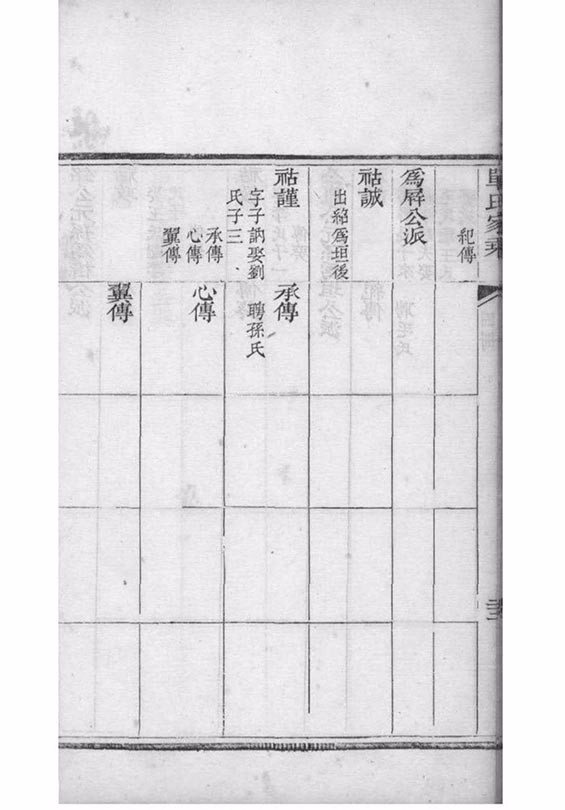 單氏家乘
紀傳
爲屛公派
祜誠
出紹爲坦後
祜謹
字子訥娶劉
氏子三
承傳
心傳
翼傳
承傳
聘孫氏
心傳
翼傳